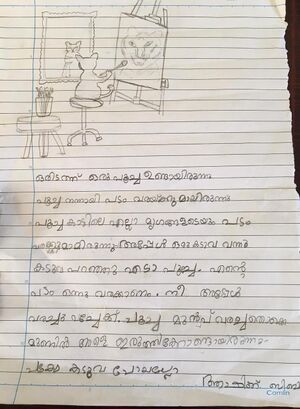 ഒരിടത്ത് ഒരു പൂച്ച ഉണ്ടായിരുന്നു
പൂച്ച നന്നായി പടം വരയ്ക്കുമായിരുന്നു
പൂച്ച കാട്ടിലെ എല്ലാ മൃഗങ്ങളുടെയും പടം
വരക്കുമായിരുന്നു. അപ്പോൾ ഒരു കടുവ വന്നു
കടുവ പറഞ്ഞു എടാ പൂച്ചേ. എന്റെ
പടം ഒന്നു വരക്കാണം. നീ
വരച്ചു വച്ചേക്ക്. പൂച്ച മുൻപ് വരച്ചതൊക്കെ
മുമ്പിൽ
പക്ഷേ കടുവ പോയല്ലോ
Comlin